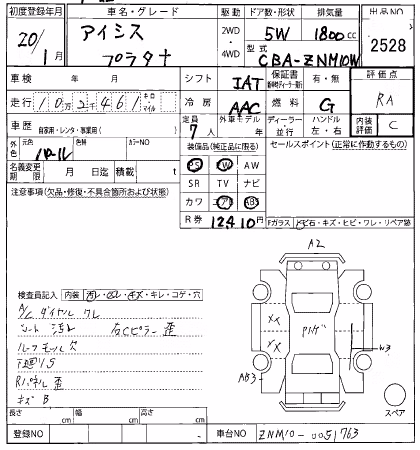 初度登録年月 車名・グレード 駆動 ドア数・形状 排気量 出品NO
20/1月 アイシス プラタナ 2WD・4WD 5W 1800cc 2528
型式 CBA-ZNM10W
車検 年 月 シフト IAT 保証書 有・無 評価点
走行 102461 キロ マイル 冷房 AAC 燃料 G RA
車歴 自家用・レンタ・事業用( ) 定員 7人 外車モデル 年 ディーラー 並行 ハンドル 左・右 内装評価 C
外色 元色 パール 色替 カラーNO 装備品(純正品に限る) セールスポイント(正常に動作するもの)
PS PW AW
名義変更期限 月 日迄 積載 t SR TV ナビ
注意事項(欠品・修復・不具合箇所および状態) カワ エアB ABS
R券 12410円 Fガラス 飛石・キズ・ヒビ・ワレ・リペア跡
A2
検査員記入 内装 汚レ・スレ・キズ・キレ・コゲ・穴
A/C ダイヤル ワレ
シート 汚れ 右Cピラー 歪
ルーフモール欠
下廻りS
Rパネル 歪
キズB
XX
XX
W3
AB3
スペア
長さ cm 幅 cm 高さ cm
登録NO 車台NO ZNM10-0051763